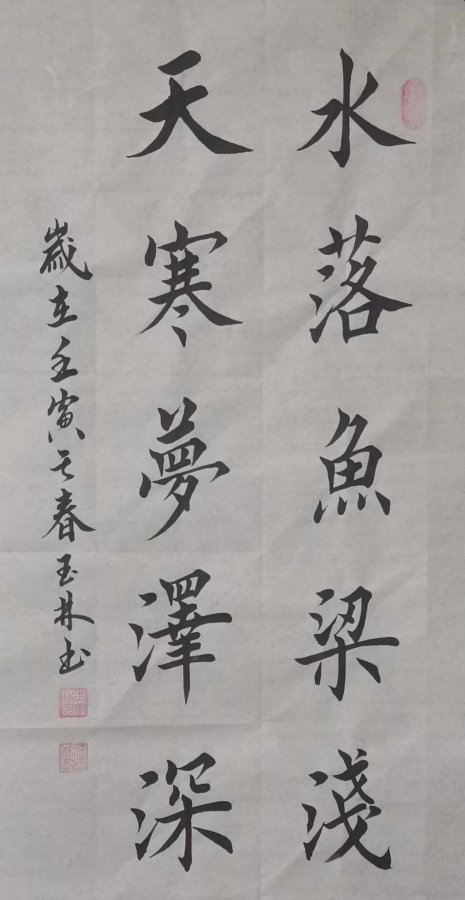 水落魚梁淺
天寒夢澤深
歲在壬寅之春玉林书